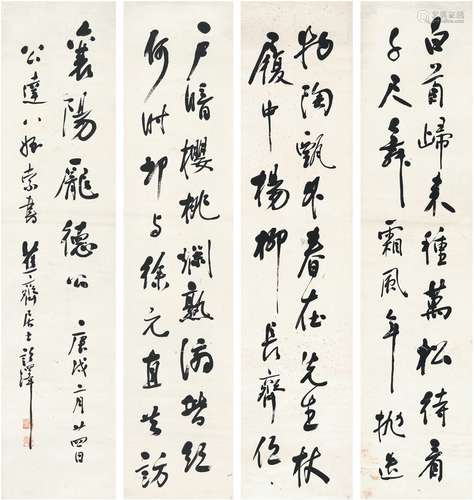 白首歸來種萬松待看
千尺舞霜風年抛造
物陶甄外春在先生杖
履中楊柳長齊低
戶暗櫻桃爛熟滴堦紅
何時卻與徐元直共訪
襄陽龐德公 庚戌二月廿四日
公達八姪索書 齋居士 澤